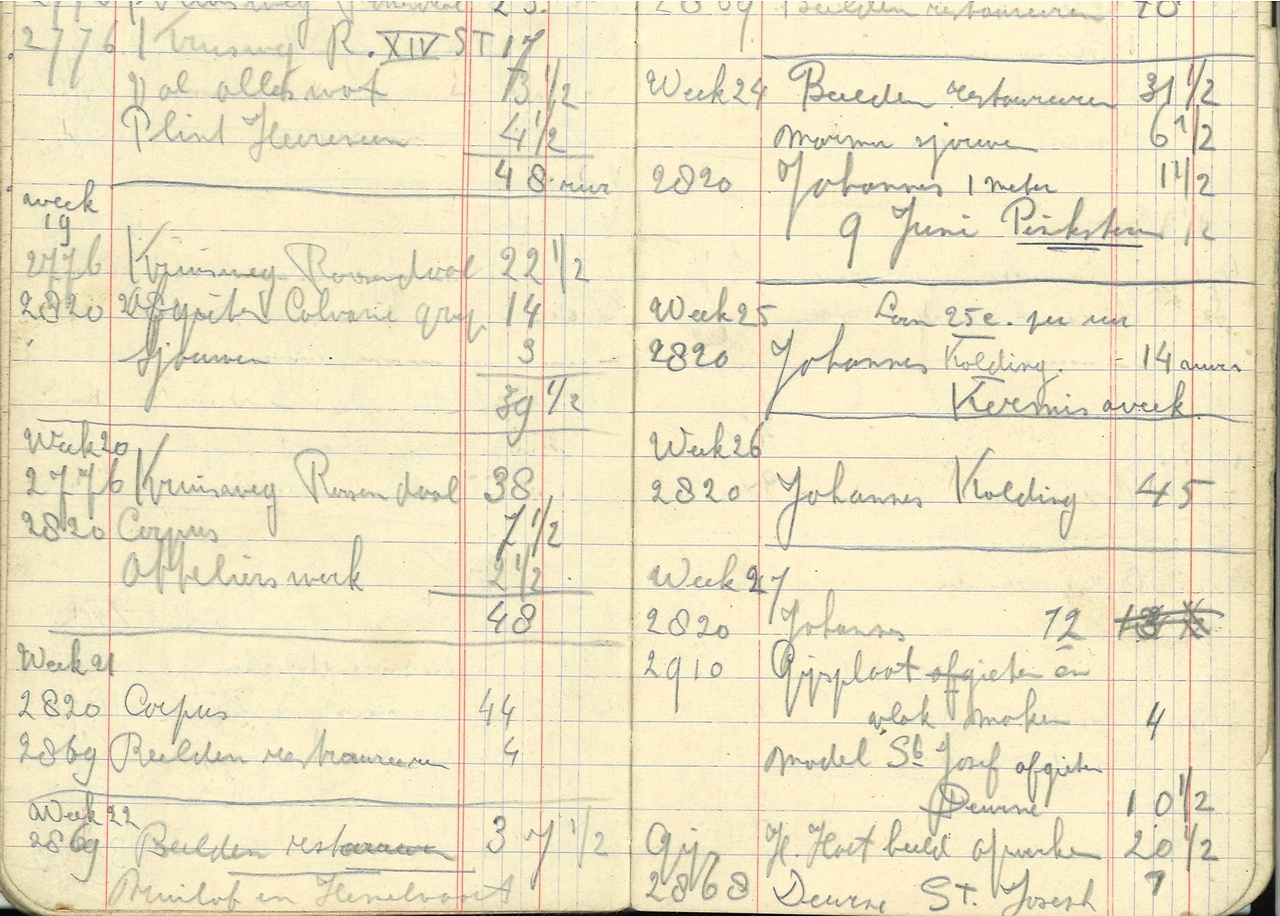 2776 Kruisweg 23.
2776 Kruisweg R. XIV ST 17
13 1/2
Plint Heereveen 4 1/2
48 uur
week
19
2776 Kruisweg Roosendaal 22 1/2
2820 Calvarie groep 14
Sjouwen 3
39 1/2
Week 20
2776 Kruisweg Roosendaal 38
2820 Corpus 7 1/2
Atteliers werk 2 1/2
48
Week 21
2820 Corpus 44
2869 Beelden restaureren 4
Week 22
2869 Beelden restaureren 37 1/2
en
2869 Beelden restaureren 10
Week 24 Beelden restaureren 31 1/2
marmer sjouwen 6 1/2
2820 Johannes 1 meter 1 1/2
9 Juni Pinksteren
Week 25 Loon 25 c. per uur
2820 Johannes Kolding. - 14 uuren
Kermis week.
Week 26
2820 Johannes Kolding 45
Week 27
2820 Johannes 12
2910 Gipsplaat afgieten en
vlak maken 4
Model St Josef afgieten
Deurne 10 1/2
Gijp H. Hart beeld afwerken 20 1/2
2868 Deurne ST. Joseph 7